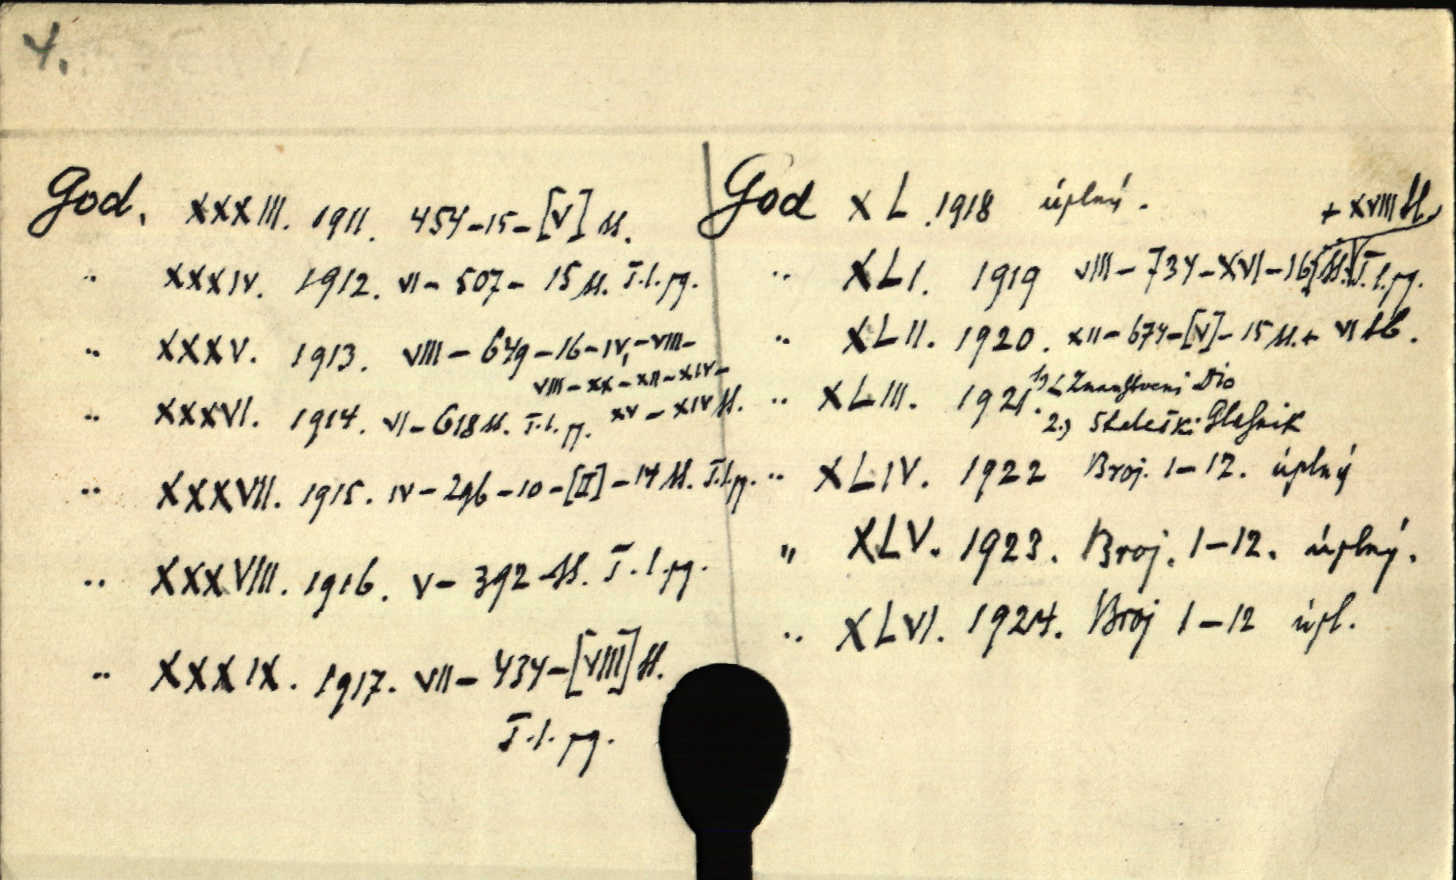 4.
God. XXXIII. 1911. 454-15-[V] M.
" XXXIV. 1912. VI- 507- 15 M. T.l.pg.
" XXXV. 1913. VIII- 649-16-IV,-VIII-
VIII-XX-XII-XIV-
" XXXVI. 1914. VI-618 M. T.l.pg. XV-XIV M.
" XXXVII. 1915. IV-296-10-[II]-14 M. T.l.pg.
" XXXVIII. 1916. V- 392 M. T.l.pg.
" XXXIX. 1917. VII- 434-[VIII] M.
T.l.pg.
God XL. 1918 úplný.
+ XVIII M.
" XLI. 1919 VIII-734-XVI-16 M. T.l.pg.
" XLII. 1920. XII-674-[V]-15 M.+ VI M.
" XLIII. 1921. 1.) Znanstveni Dio
2.) Staleški Glasnik
" XLIV. 1922 Broj. 1-12. úplný
" XLV. 1923. Broj. 1-12. úplný.
" XLVI. 1924. Broj 1-12 úpl.